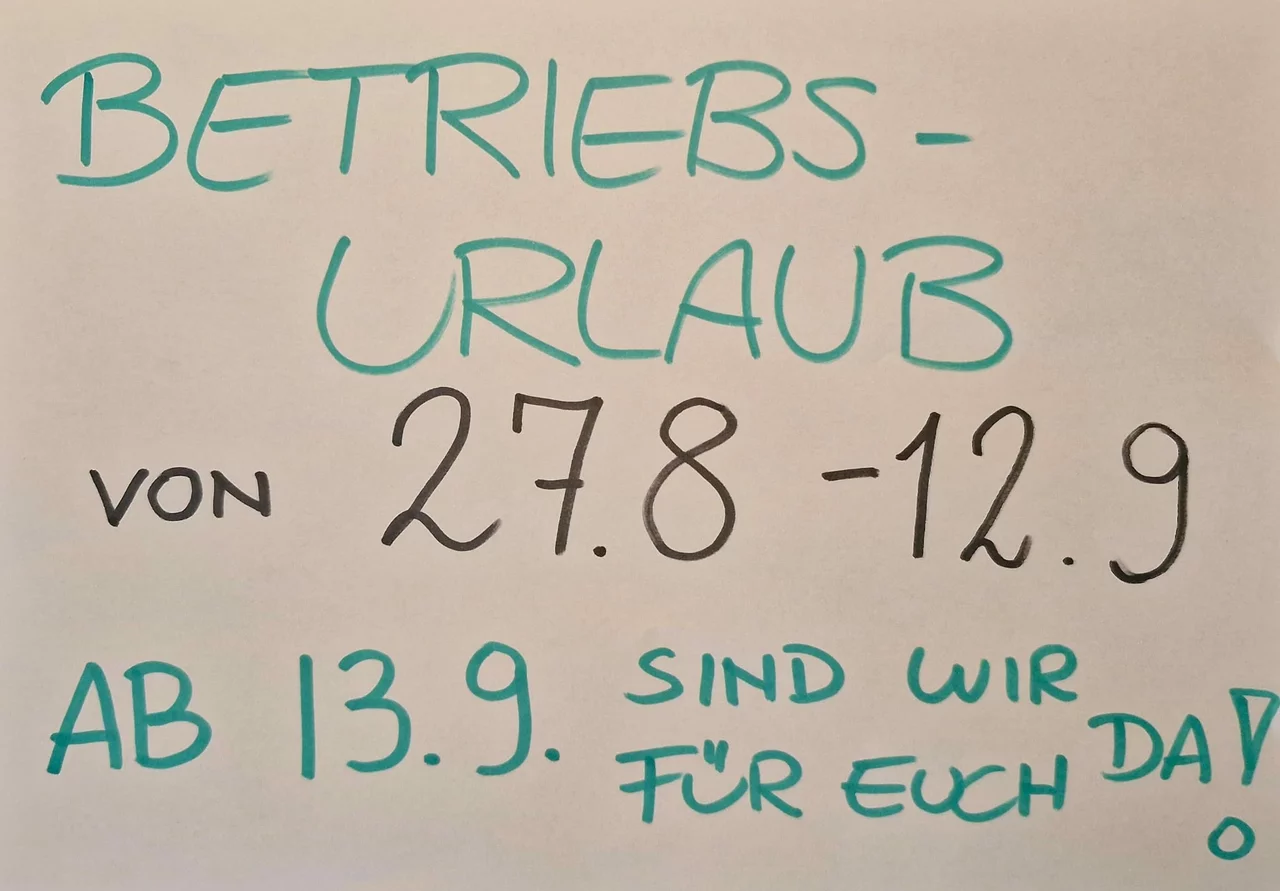 BETRIEBS-
URLAUB
VON 27.8 - 12.9
AB 13.9. SIND WIR
FÜR EUCH DA!